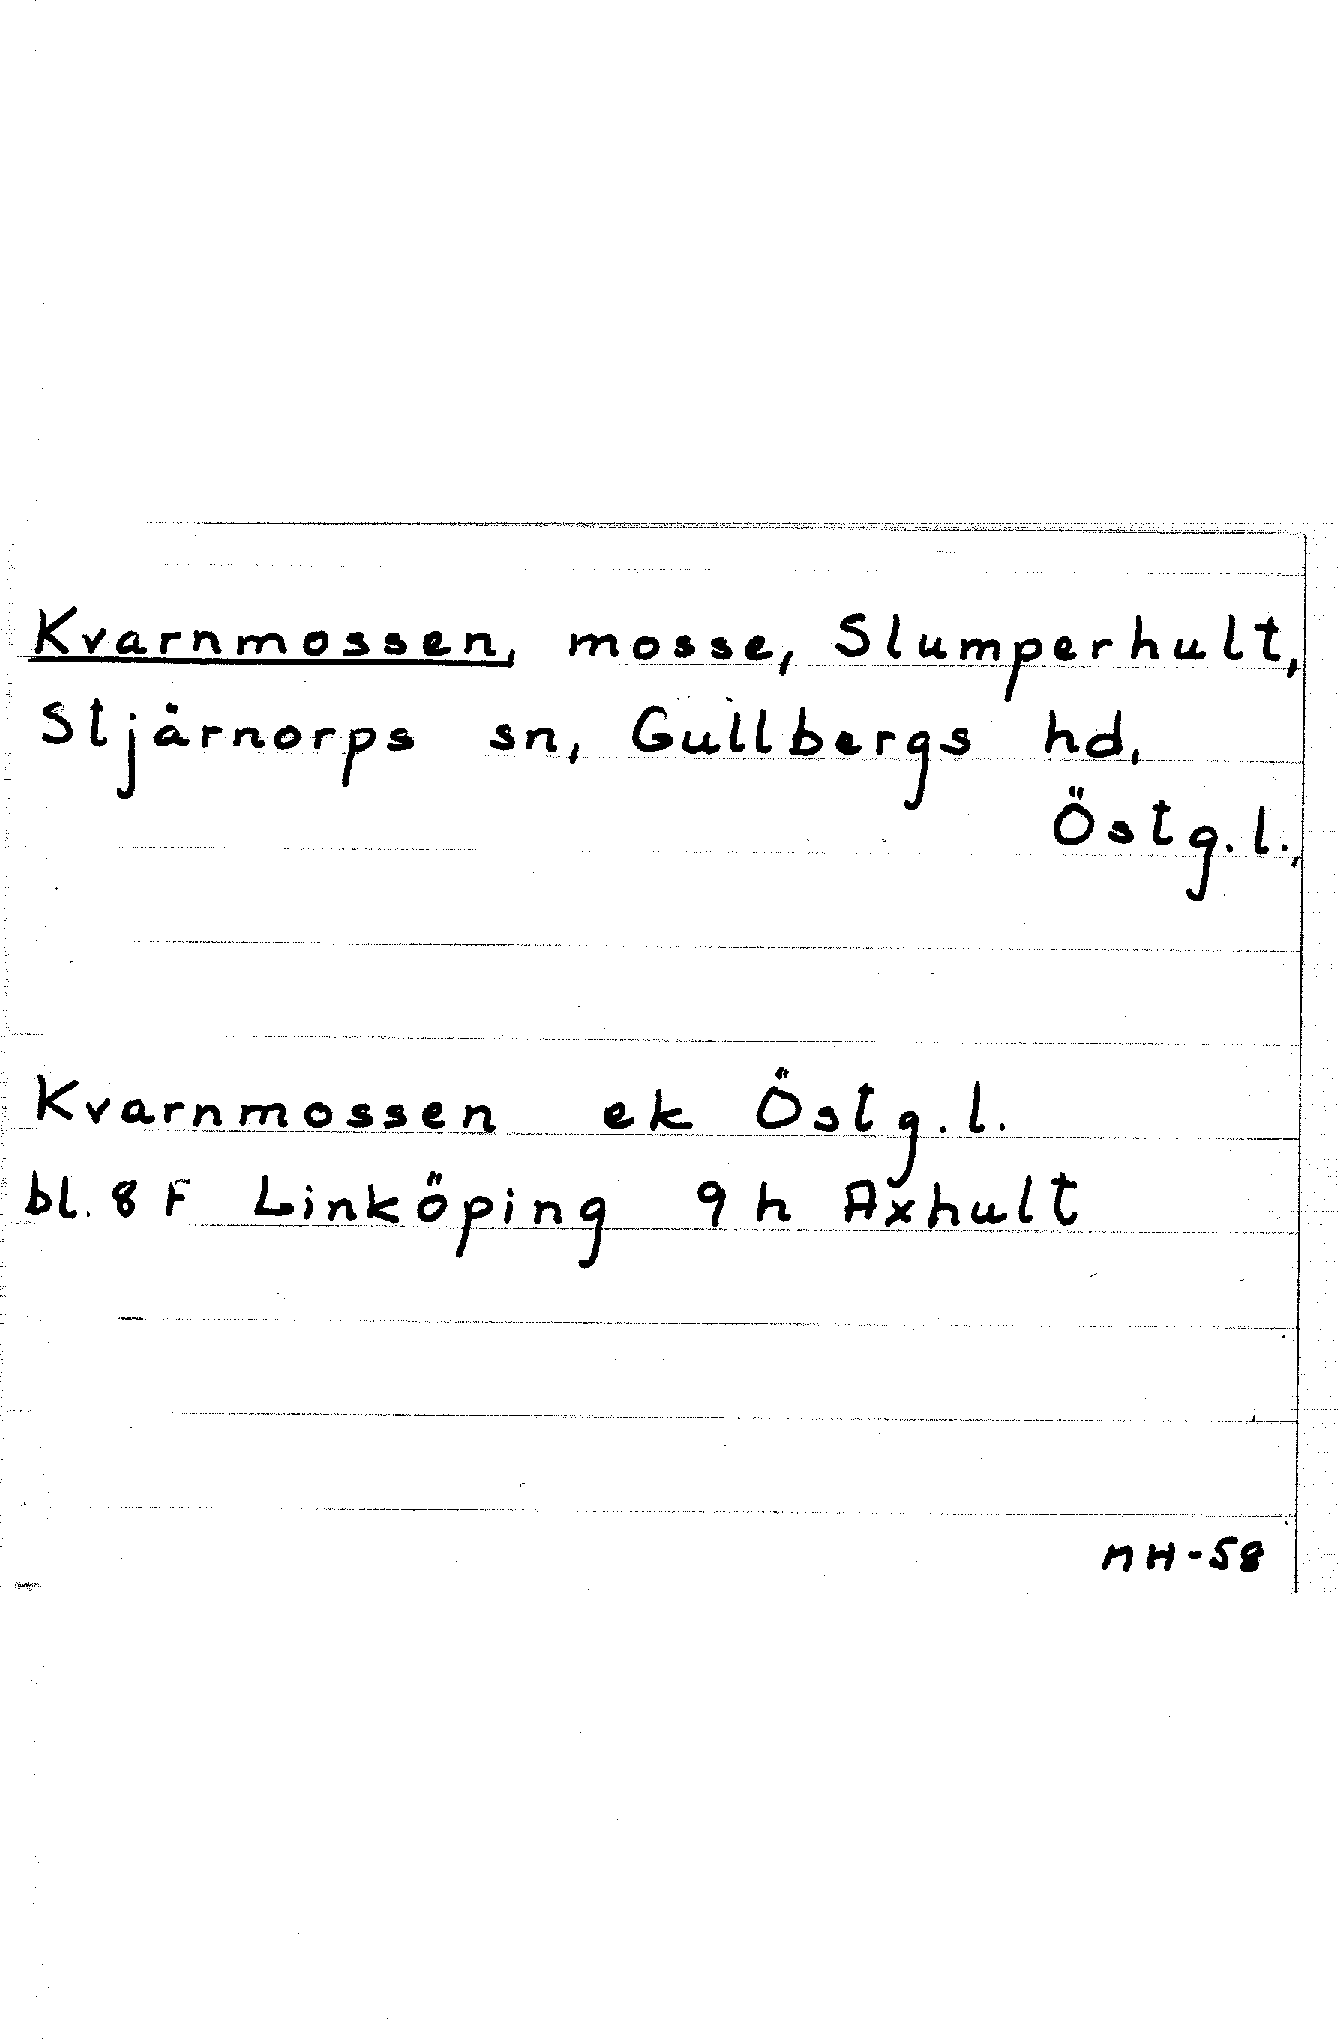 Kvarnmossen, mosse, Slumperhult,
Stjärnorps sn, Gullbergs hd,
Östg.l.,
Kvarnmossen ek Östg.l.
bl. 8 F Linköping 9 h Axhult
MH-58